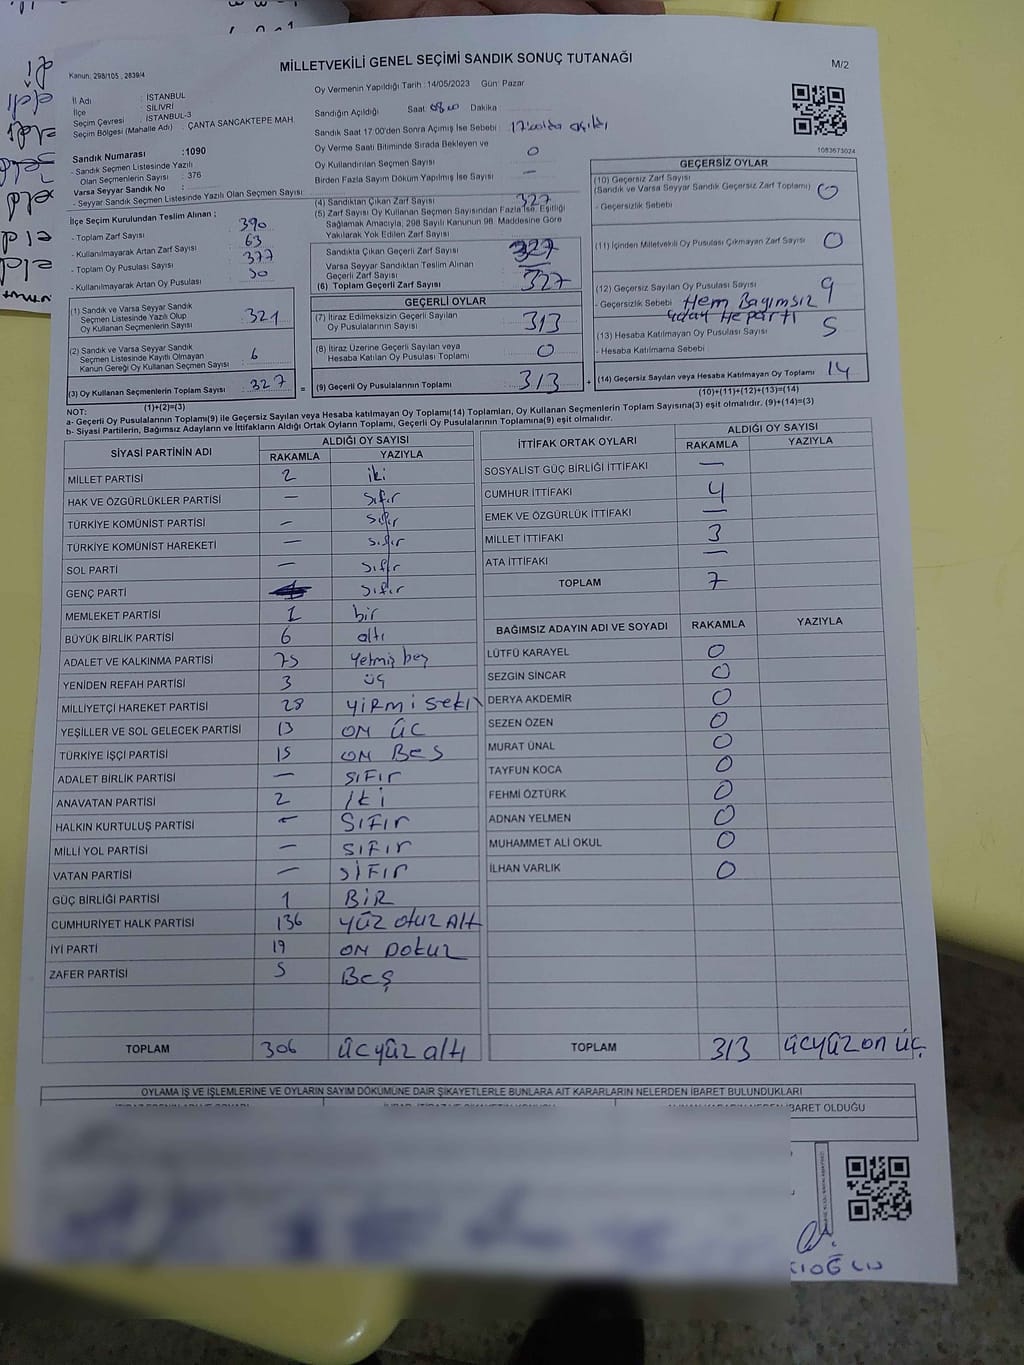 MİLLETVEKİLİ GENEL SEÇİMİ SANDIK SONUÇ TUTANAĞI
Kanun, 298/105 , 2839/4
M/2
İl Adı : İSTANBUL
İlçe : SİLİVRİ
Seçim Çevresi : İSTANBUL-3
Seçim Bölgesi (Mahalle Adı) : ÇANTA SANCAKTEPE MAH.
Sandık Numarası :1090
- Sandık Seçmen Listesinde Yazılı
Olan Seçmenlerin Sayısı : 376
Varsa Seyyar Sandık No :
- Seyyar Sandık Seçmen Listesinde Yazılı Olan Seçmen Sayısı:
İlçe Seçim Kurulundan Teslim Alınan ;
- Toplam Zarf Sayısı : 390
- Kullanılmayarak Artan Zarf Sayısı : 63
- Toplam Oy Pusulası Sayısı : 377
- Kullanılmayarak Artan Oy Pusulası : 50
(1) Sandık ve Varsa Seyyar Sandık
Seçmen Listesinde Yazılı Olup
Oy Kullanan Seçmenlerin Sayısı : 321
(2) Sandık ve Varsa Seyyar Sandık
Seçmen Listesinde Kayıtlı Olmayan
Kanun Gereği Oy Kullanan Seçmen Sayısı : 6
(3) Oy Kullanan Seçmenlerin Toplam Sayısı : 327
(1)+(2)=(3)
Oy Vermenin Yapıldığı Tarih :14/05/2023 Gün: Pazar
Sandığın Açıldığı Saat: 08:00 Dakika :
Sandık Saat 17:00'den Sonra Açımış İse Sebebi : 17:00'da açıldı
Oy Verme Saati Bitiminde Sırada Bekleyen ve
Oy Kullandırılan Seçmen Sayısı : 0
Birden Fazla Sayım Döküm Yapılmış İse Sayısı : —
(4) Sandıktan Çıkan Zarf Sayısı : 327
(5) Zarf Sayısı Oy Kullanan Seçmen Sayısından Fazla İse, Eşitliği
Sağlamak Amacıyla, 298 Sayılı Kanunun 98. Maddesine Göre
Yakılarak Yok Edilen Zarf Sayısı :
Sandıkta Çıkan Geçerli Zarf Sayısı : 327
Varsa Seyyar Sandıktan Teslim Alınan
Geçerli Zarf Sayısı : —
(6) Toplam Geçerli Zarf Sayısı : 327
GEÇERLİ OYLAR
(7) İtiraz Edilmeksizin Geçerli Sayılan
Oy Pusulalarının Sayısı : 313
(8) İtiraz Üzerine Geçerli Sayılan veya
Hesaba Katılan Oy Pusulası Toplamı : 0
= (9) Geçerli Oy Pusulalarının Toplamı : 313 +
1083673024
GEÇERSİZ OYLAR
(10) Geçersiz Zarf Sayısı
(Sandık ve Varsa Seyyar Sandık Geçersiz Zarf Toplamı) : 0
- Geçersizlik Sebebi :
(11) İçinden Milletvekili Oy Pusulası Çıkmayan Zarf Sayısı : 0
(12) Geçersiz Sayılan Oy Pusulası Sayısı : 9
- Geçersizlik Sebebi : Hem Bagımsız
aday He parti
(13) Hesaba Katılmayan Oy Pusulası Sayısı : 5
- Hesaba Katılmama Sebebi :
(14) Geçersiz Sayılan veya Hesaba Katılmayan Oy Toplamı : 14
(10)+(11)+(12)+(13)=(14)
NOT:
a- Geçerli Oy Pusulalarının Toplamı(9) ile Geçersiz Sayılan veya Hesaba katılmayan Oy Toplamı(14) Toplamları, Oy Kullanan Seçmenlerin Toplam Sayısına(3) eşit olmalıdır. (9)+(14)=(3)
b- Siyasi Partilerin, Bağımsız Adayların ve İttifakların Aldığı Ortak Oyların Toplamı, Geçerli Oy Pusulalarının Toplamına(9) eşit olmalıdır.
SİYASİ PARTİNİN ADI ALDIĞI OY SAYISI
RAKAMLA YAZIYLA
MİLLET PARTİSİ 2 iki
HAK VE ÖZGÜRLÜKLER PARTİSİ — sıfır
TÜRKİYE KOMÜNİST PARTİSİ — sıfır
TÜRKİYE KOMÜNİST HAREKETİ — sıfır
SOL PARTİ — sıfır
GENÇ PARTİ sıfır
MEMLEKET PARTİSİ 1 bir
BÜYÜK BİRLİK PARTİSİ 6 altı
ADALET VE KALKINMA PARTİSİ 75 Yetmiş beş
YENİDEN REFAH PARTİSİ 3 üç
MİLLİYETÇİ HAREKET PARTİSİ 28 yirmi sekiz
YEŞİLLER VE SOL GELECEK PARTİSİ 13 ON ÜC
TÜRKİYE İŞÇİ PARTİSİ 15 ON BES
ADALET BİRLİK PARTİSİ — SIFIr
ANAVATAN PARTİSİ 2 İki
HALKIN KURTULUŞ PARTİSİ — SIFIr
MİLLİ YOL PARTİSİ — SIFIr
VATAN PARTİSİ — SİFIr
GÜÇ BİRLİĞİ PARTİSİ 1 BİR
CUMHURİYET HALK PARTİSİ 136 YÜZ otuz Altı
İYİ PARTİ 19 ON Dokuz
ZAFER PARTİSİ 5 BEŞ
TOPLAM 306 ÜCyüz altı
İTTİFAK ORTAK OYLARI ALDIĞI OY SAYISI
RAKAMLA YAZIYLA
SOSYALİST GÜÇ BİRLİĞİ İTTİFAKI —
CUMHUR İTTİFAKI 4
EMEK VE ÖZGÜRLÜK İTTİFAKI —
MİLLET İTTİFAKI 3
ATA İTTİFAKI —
TOPLAM 7
BAĞIMSIZ ADAYIN ADI VE SOYADI RAKAMLA YAZIYLA
LÜTFÜ KARAYEL 0
SEZGİN SİNCAR 0
DERYA AKDEMİR 0
SEZEN ÖZEN 0
MURAT ÜNAL 0
TAYFUN KOCA 0
FEHMİ ÖZTÜRK 0
ADNAN YELMEN 0
MUHAMMET ALİ OKUL 0
İLHAN VARLIK 0
TOPLAM 313 üçyüz on üç
OYLAMA İŞ VE İŞLEMLERİNE VE OYLARIN SAYIM DÖKÜMÜNE DAİR ŞİKAYETLERLE BUNLARA AİT KARARLARIN NELERDEN İBARET BULUNDUKLARI
İBARET OLDUĞU